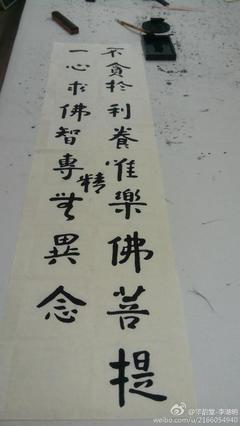 不貪於利養唯樂佛菩提
一心求佛智專精無異念
@华韵堂-李湖明
weibo.com/u/2166054940